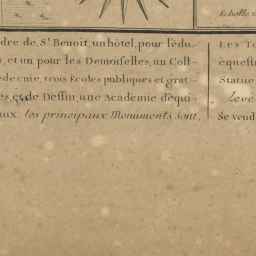 Echelle
dre de St Benoit, un hôtel, pour l'édu-
, et un pour les Demoiselles, un Coll-
edecine, trois Ecoles publiques et grat-
es, et de Dessin, une Academie d'equi-
aux. les principaux Monuments sont,
Les T
equest
Statue
levé
Se vend